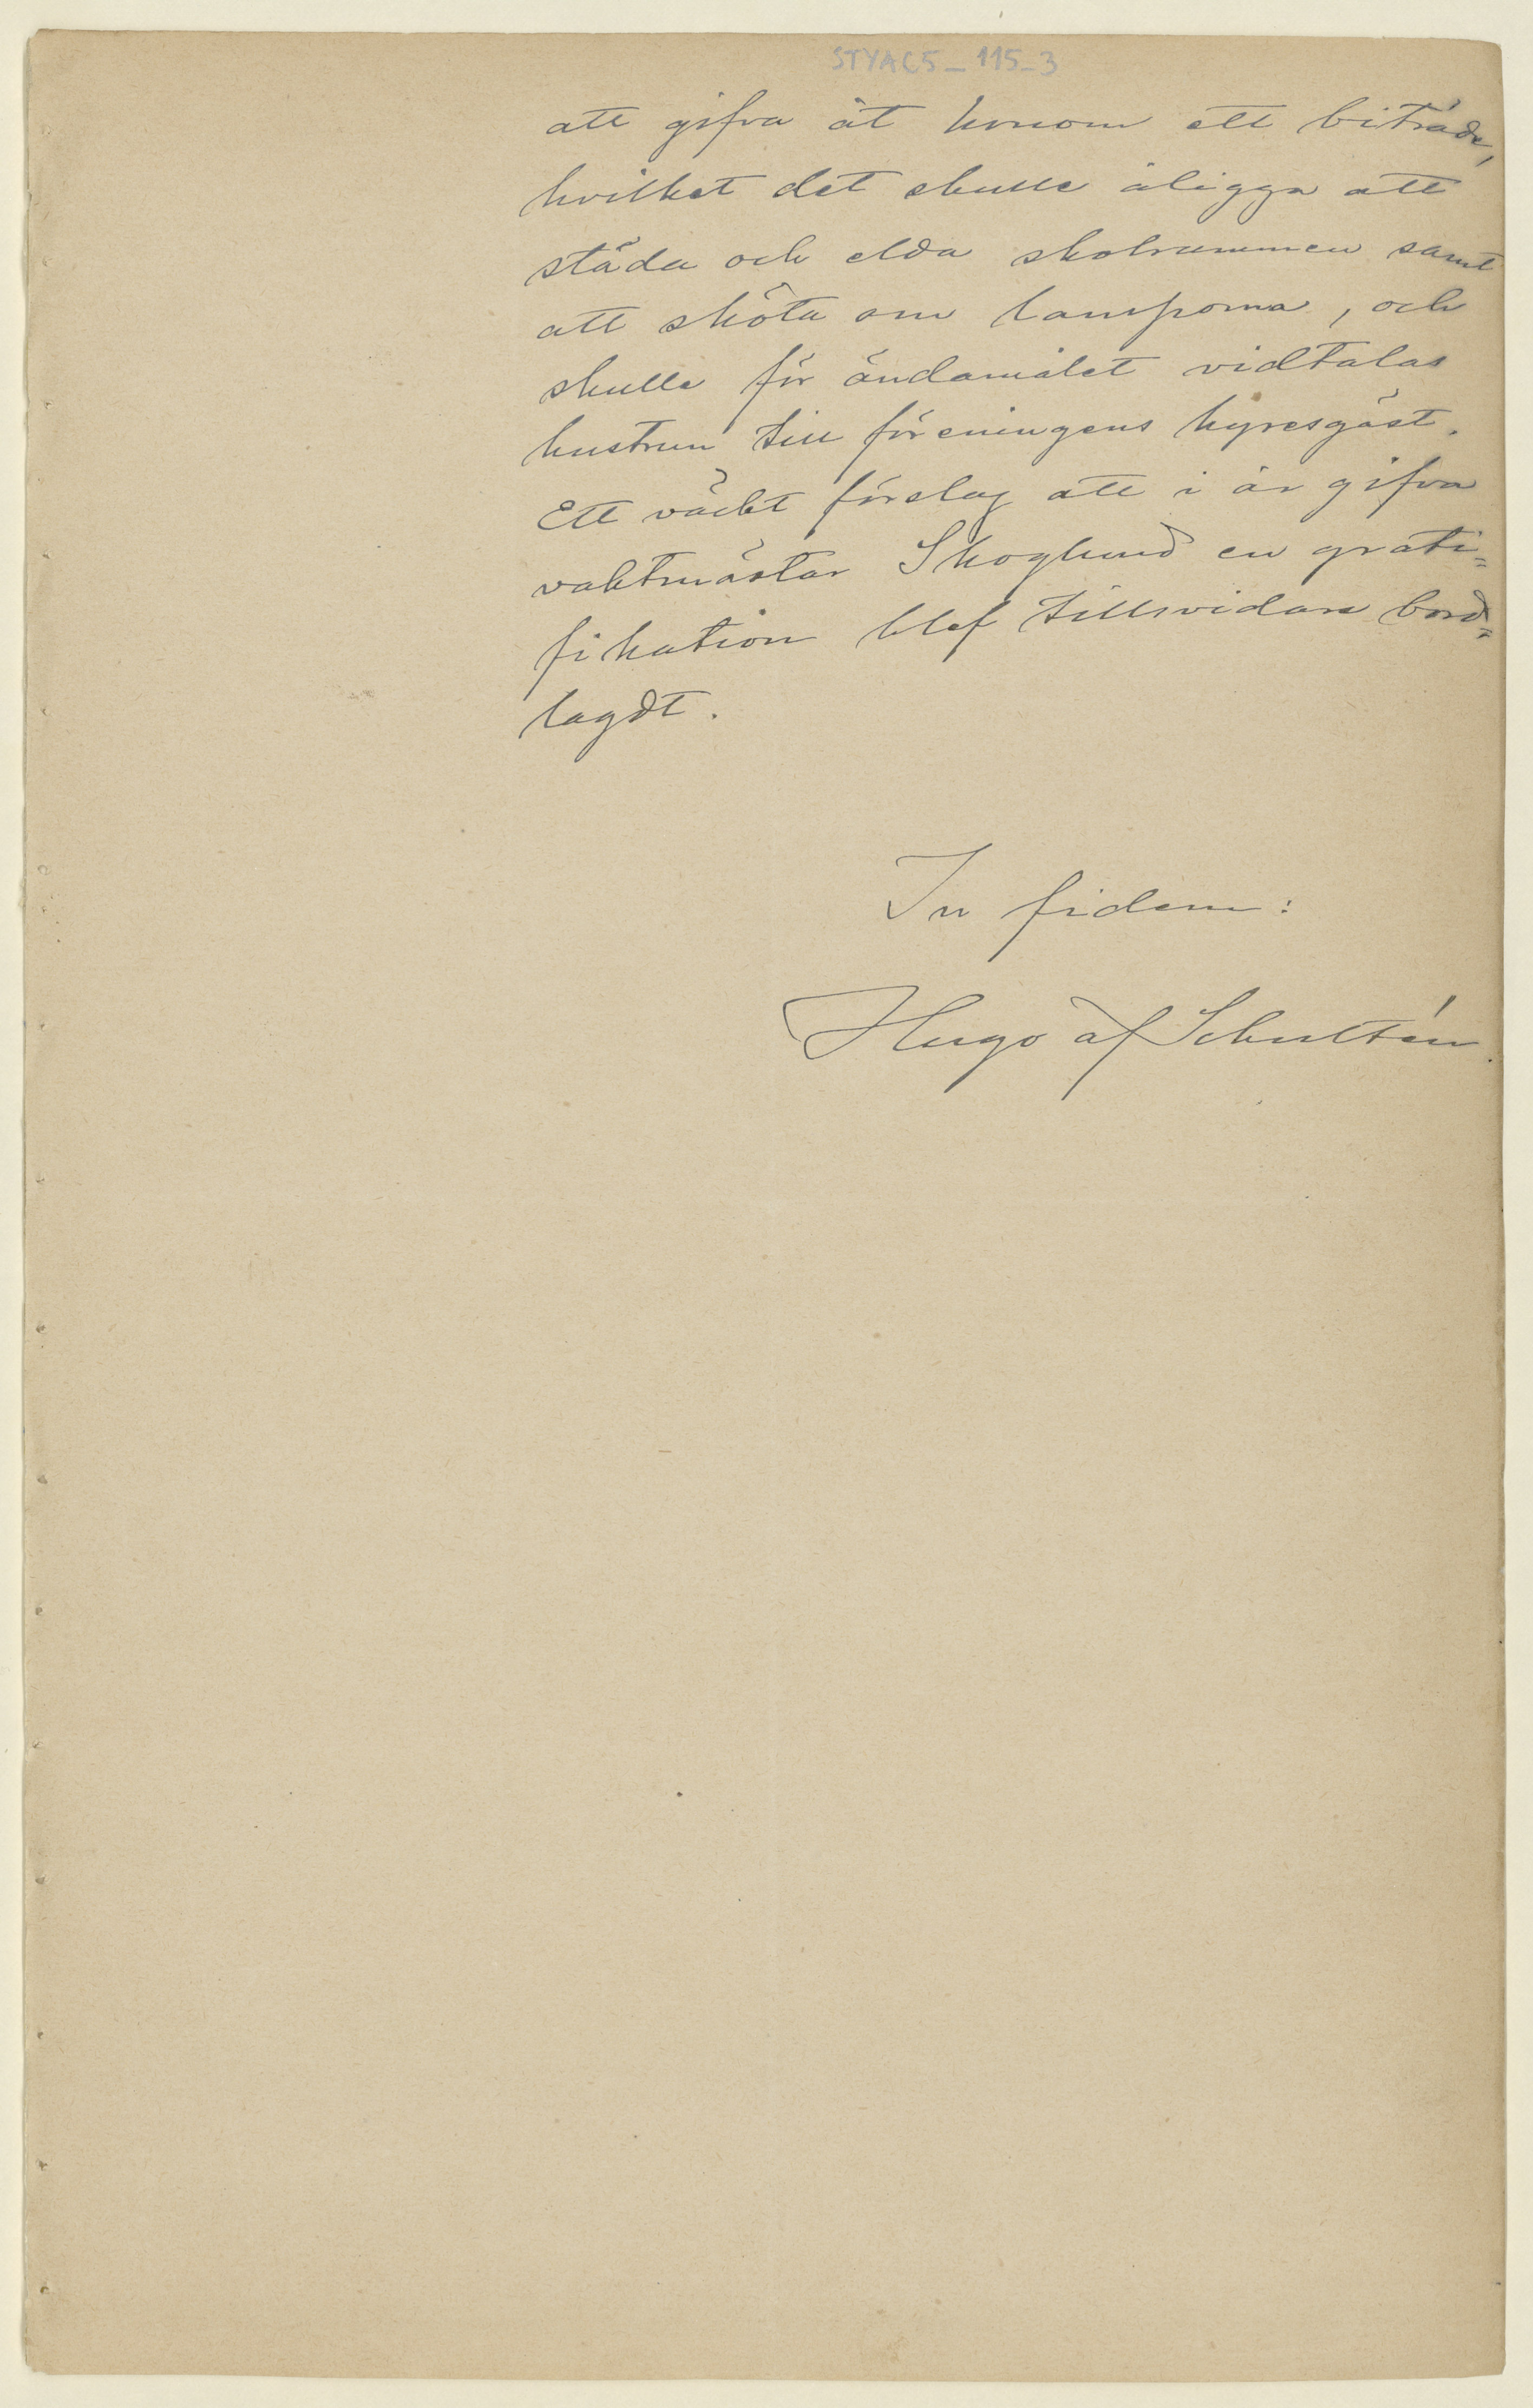 STYAC5_115_3
att gifva åt honom ett biträde,
hvilket det skulle åligga att
städa och elda skolrummen samt
att sköta om lamporna, och
skulle för ändamålet vidtalas
hustrun till föreningens hyresgäst.
Ett väckt förslag att i år gifva
vaktmästar Skoglund en grati=
fikation blef tillsvidare bord=
lagdt.
In fidem:
Hugo af Schultén.